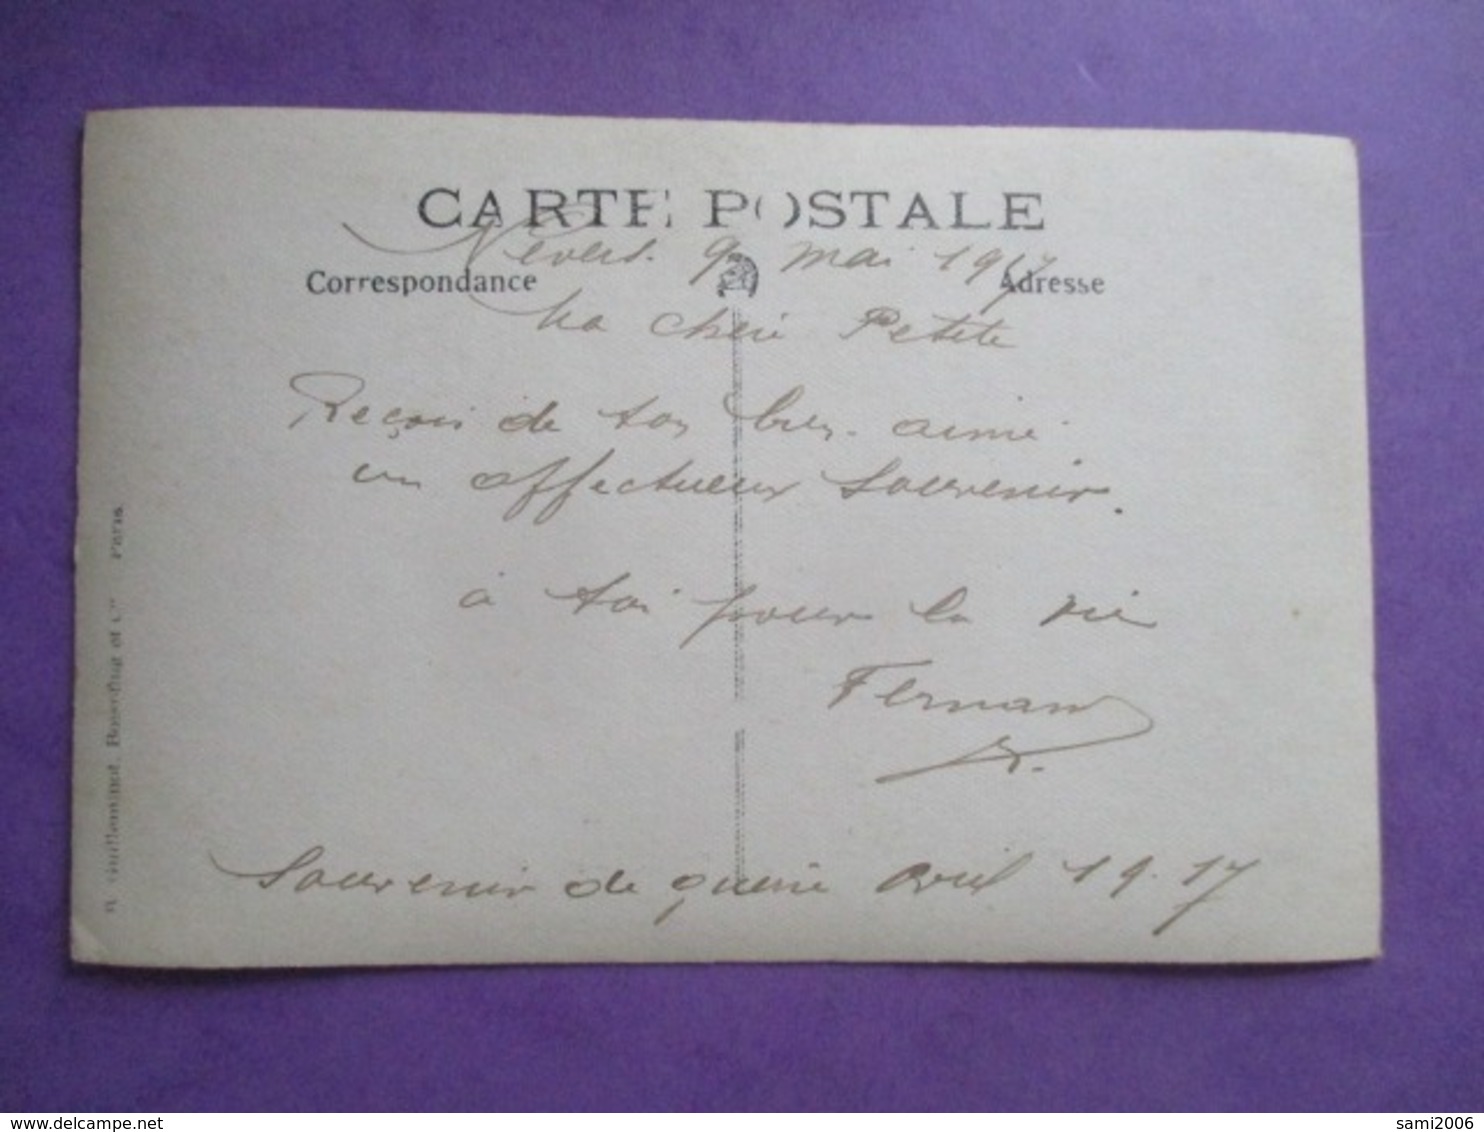 CARTE POSTALE
Nevers. 9 mai 1917
Correspondance
Adresse
Ma Chérie Petite
Reçois de ton bien-aimé
un affectueux Souvenir.
à toi pour la vie
Fernand
Souvenir de guerre Avril 1917
R. Guilleminot, Boespflug et Cie Paris
delcampe.net
sami2006